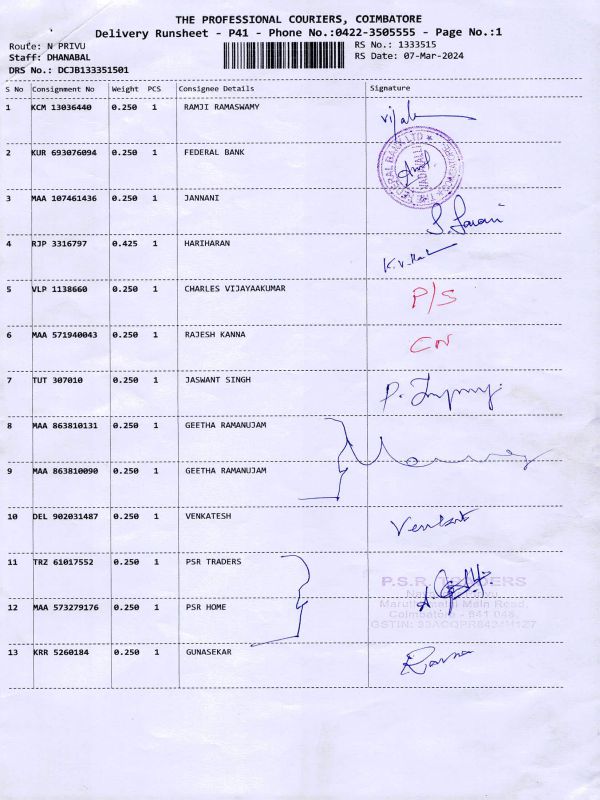 THE PROFESSIONAL COURIERS, COIMBATORE
Delivery Runsheet - P41 - Phone No.:0422-3505555 - Page No.:1
Route: N PRIVU RS No.: 1333515
Staff: DHANABAL RS Date: 07-Mar-2024
DRS No.: DCJB133351501
S No Consignment No Weight PCS Consignee Details Signature
1 KCM 13036440 0.250 1 RAMJI RAMASWAMY
2 KUR 693076094 0.250 1 FEDERAL BANK
3 MAA 107461436 0.250 1 JANNANI
4 RJP 3316797 0.425 1 HARIHARAN
5 VLP 1138660 0.250 1 CHARLES VIJAYAAKUMAR P/S
6 MAA 571940043 0.250 1 RAJESH KANNA CN
7 TUT 307010 0.250 1 JASWANT SINGH
8 MAA 863810131 0.250 1 GEETHA RAMANUJAM
9 MAA 863810090 0.250 1 GEETHA RAMANUJAM
10 DEL 902031487 0.250 1 VENKATESH
11 TRZ 61017552 0.250 1 PSR TRADERS
P.S.R. TRADERS
12 MAA 573279176 0.250 1 PSR HOME
Main Road,
Coimbatore - 641 046.
13 KRR 5260184 0.250 1 GUNASEKAR